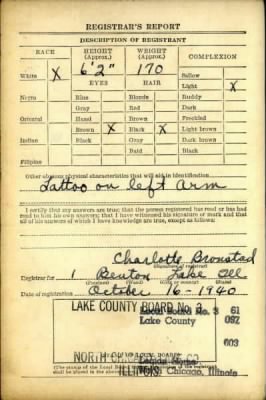 REGISTRAR'S REPORT
DESCRIPTION OF REGISTRANT
RACE HEIGHT (Approx.) WEIGHT (Approx.) COMPLEXION
White X 6'2" 170 Sallow
EYES HAIR Light X
Negro Blue Blonde Ruddy
Gray Red Dark
Oriental Hazel Brown Freckled
Brown X Black X Light brown
Indian Black Gray Dark brown
Bald Black
Filipino
Other obvious physical characteristics that will aid in identification
Tattoo on left arm
I certify that my answers are true; that the person registered has read or has had read to him his own answers; that I have witnessed his signature or mark and that all of his answers of which I have knowledge are true, except as follows:
Charlotte Bronstad
(Signature of registrar)
Registrar for 1 Benton Lake Ill
Date of registration October 16-1940
LAKE COUNTY BOARD No. 3
Local Board No. 3 61
Lake County 097
603
NORTH CHICAGO
ILLINOIS Chicago, Illinois
(The stamp of the Local Board